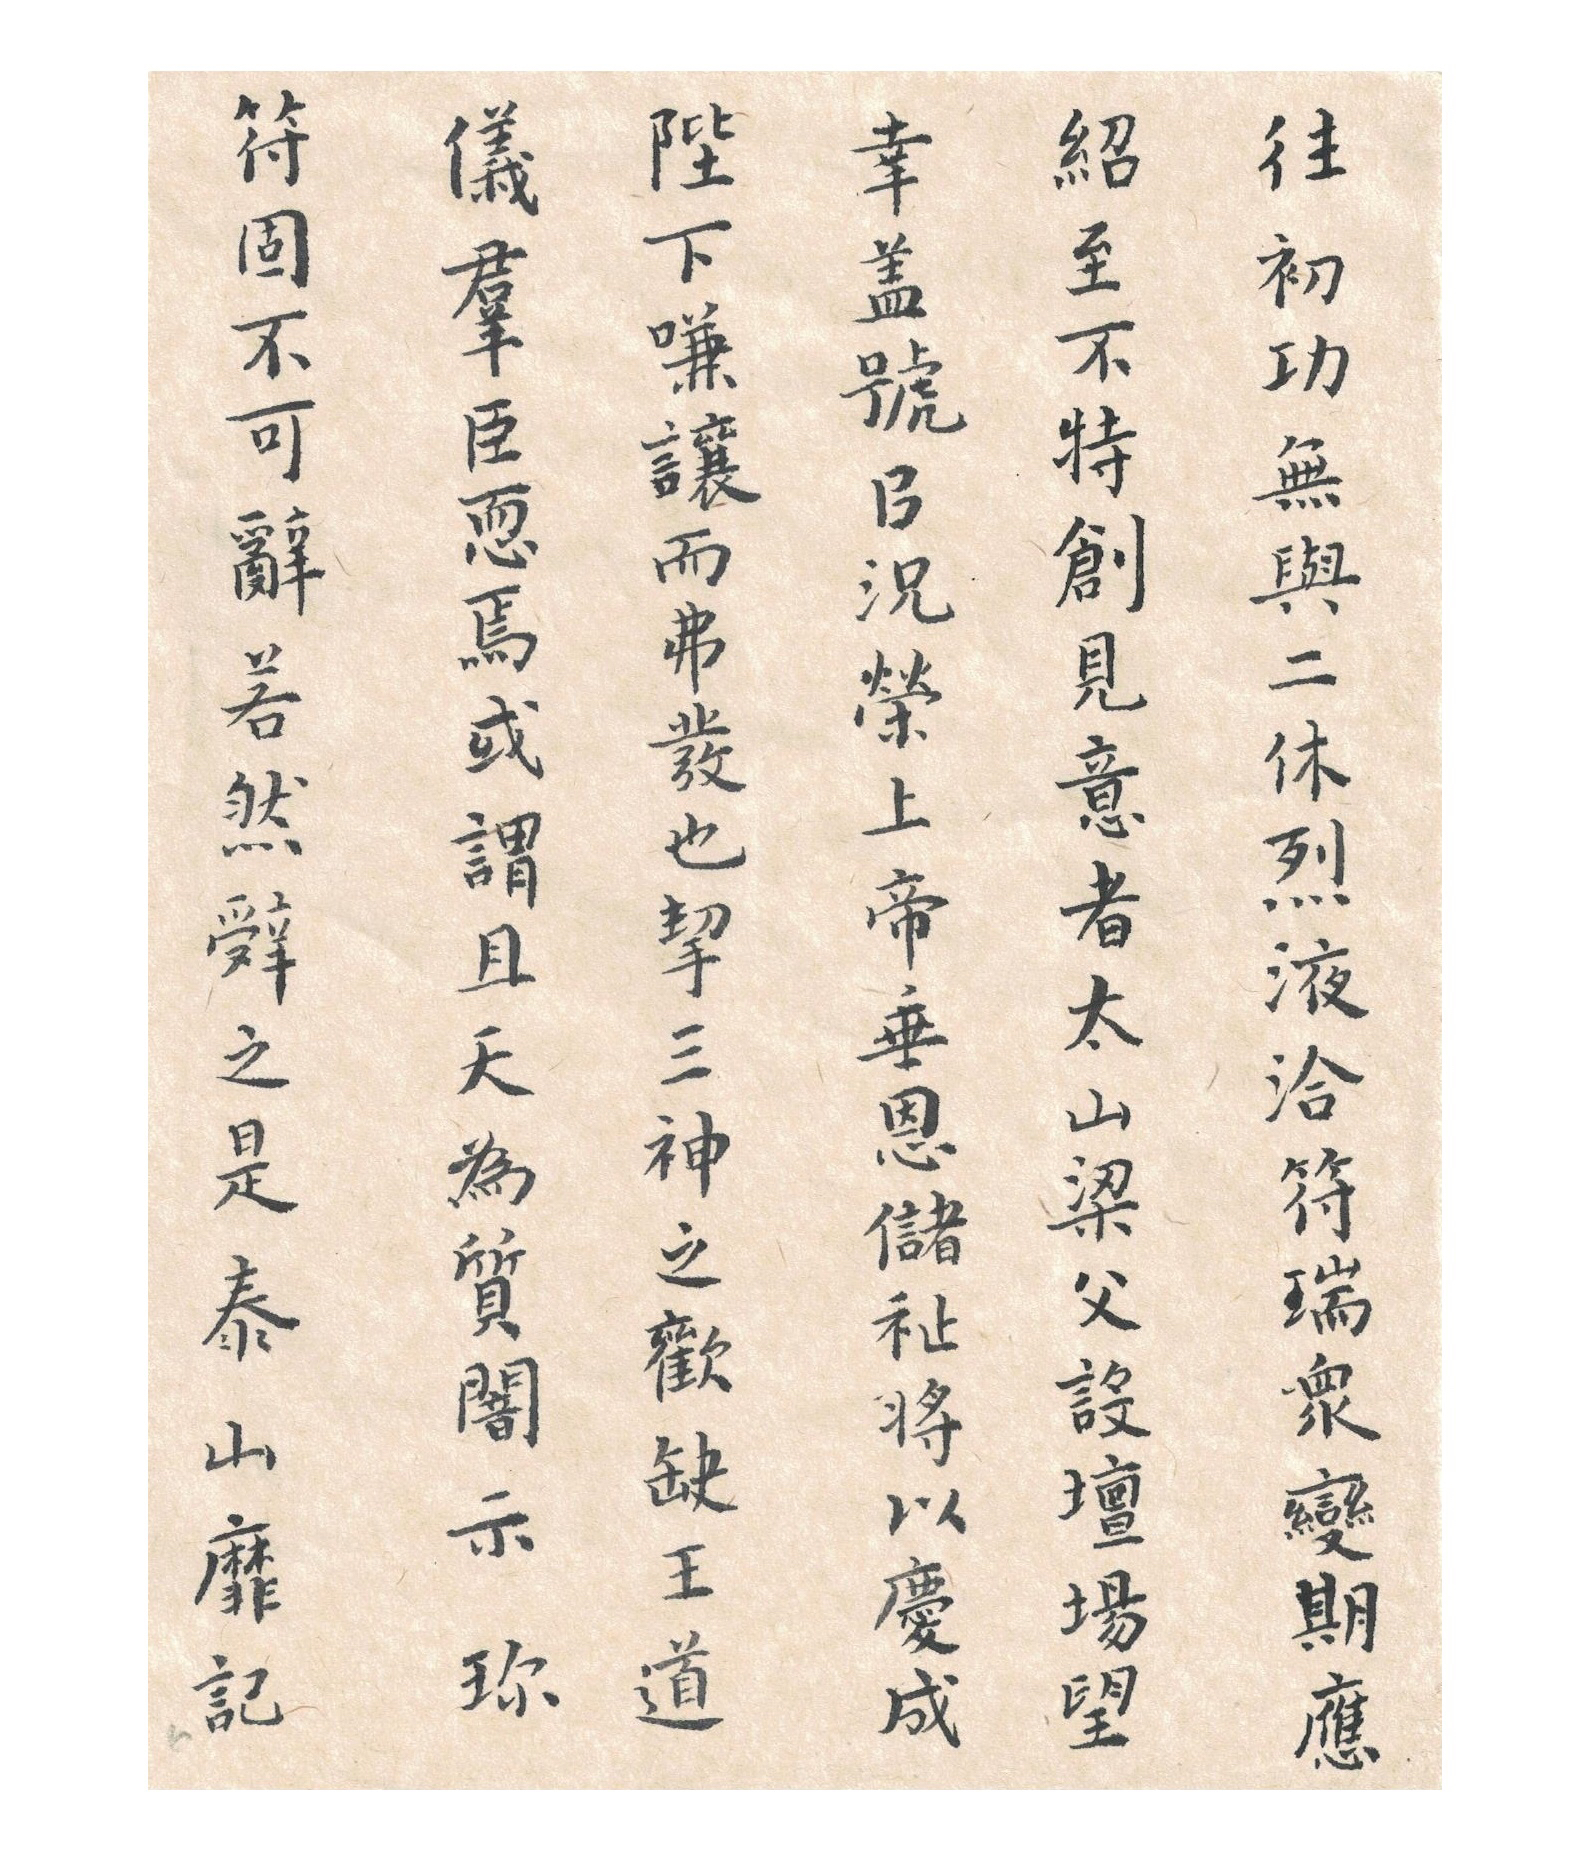 往初功無與二休烈液洽符瑞衆變期應
紹至不特創見意者太山梁父設壇場望
幸盖號㠯況榮上帝垂恩儲祉將以慶成
陛下嗛讓而弗發也挈三神之歡缺王道
儀羣臣恧焉或謂且天為質闇示珎
符固不可辭若然辤之是泰山靡記